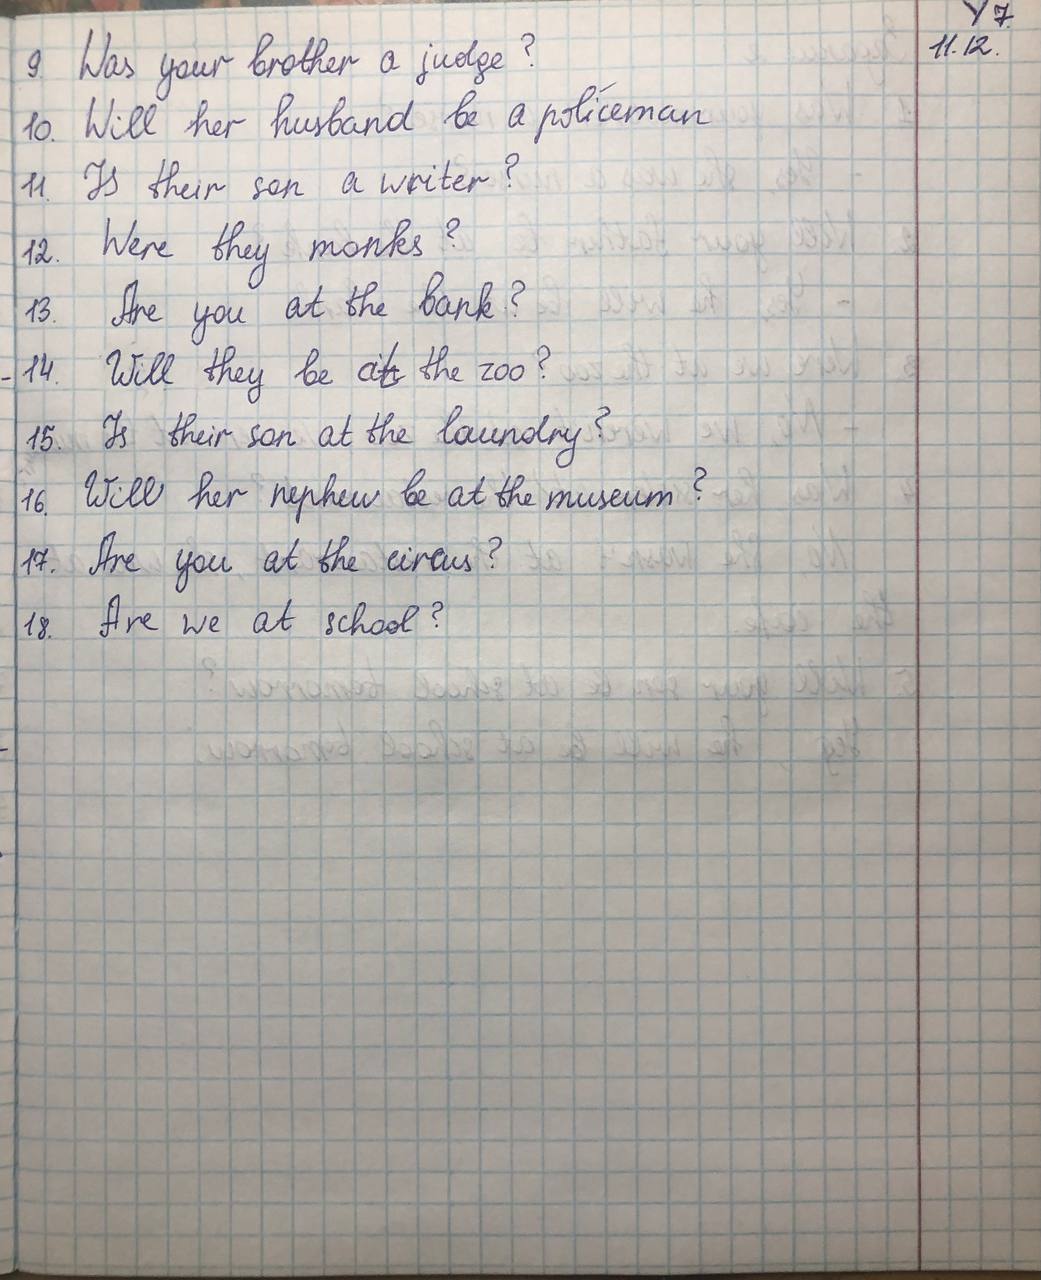 У 7
11.12.
9. Was your brother a judge?
10. Will her husband be a policeman
11. Is their son a writer?
12. Were they monks?
13. Are you at the bank?
14. Will they be at the zoo?
15. Is their son at the laundry?
16. Will her nephew be at the museum?
17. Are you at the circus?
18. Are we at school?